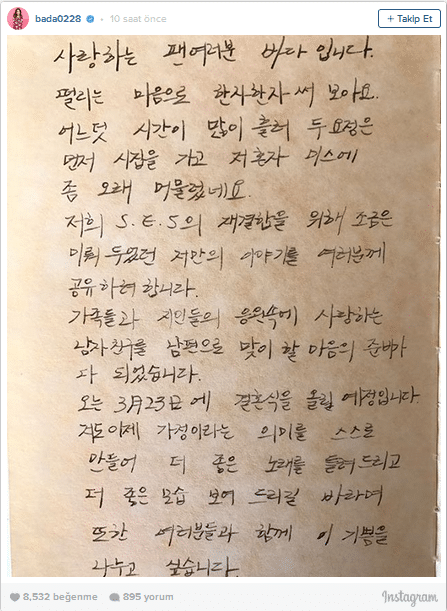 bada0228 • 10 saat önce
+ Takip Et
사랑하는 팬여러분 바다 입니다.
떨리는 마음으로 한자한자 써 보아요.
어느덧 시간이 많이 흘러 두 요정은
먼저 시집을 가고 저 혼자 미스에
좀 오래 머물렀네요.
저희 S.E.S의 재결합을 위해 조금은
미뤄 두었던 저만의 이야기를 여러분께
공유하려 합니다.
가족들과 지인들의 응원속에 사랑하는
남자친구를 남편으로 맞이 할 마음의 준비가
다 되었습니다.
오는 3月23日에 결혼식을 올릴 예정입니다
저도 이제 가정이라는 의미를 스스로
만들어 더 좋은 노래를 들려 드리고
더 좋은 모습 보여 드리길 바라며
또한 여러분들과 함께 이 기쁨을
나누고 싶습니다.
8,532 beğenme 895 yorum Instagram